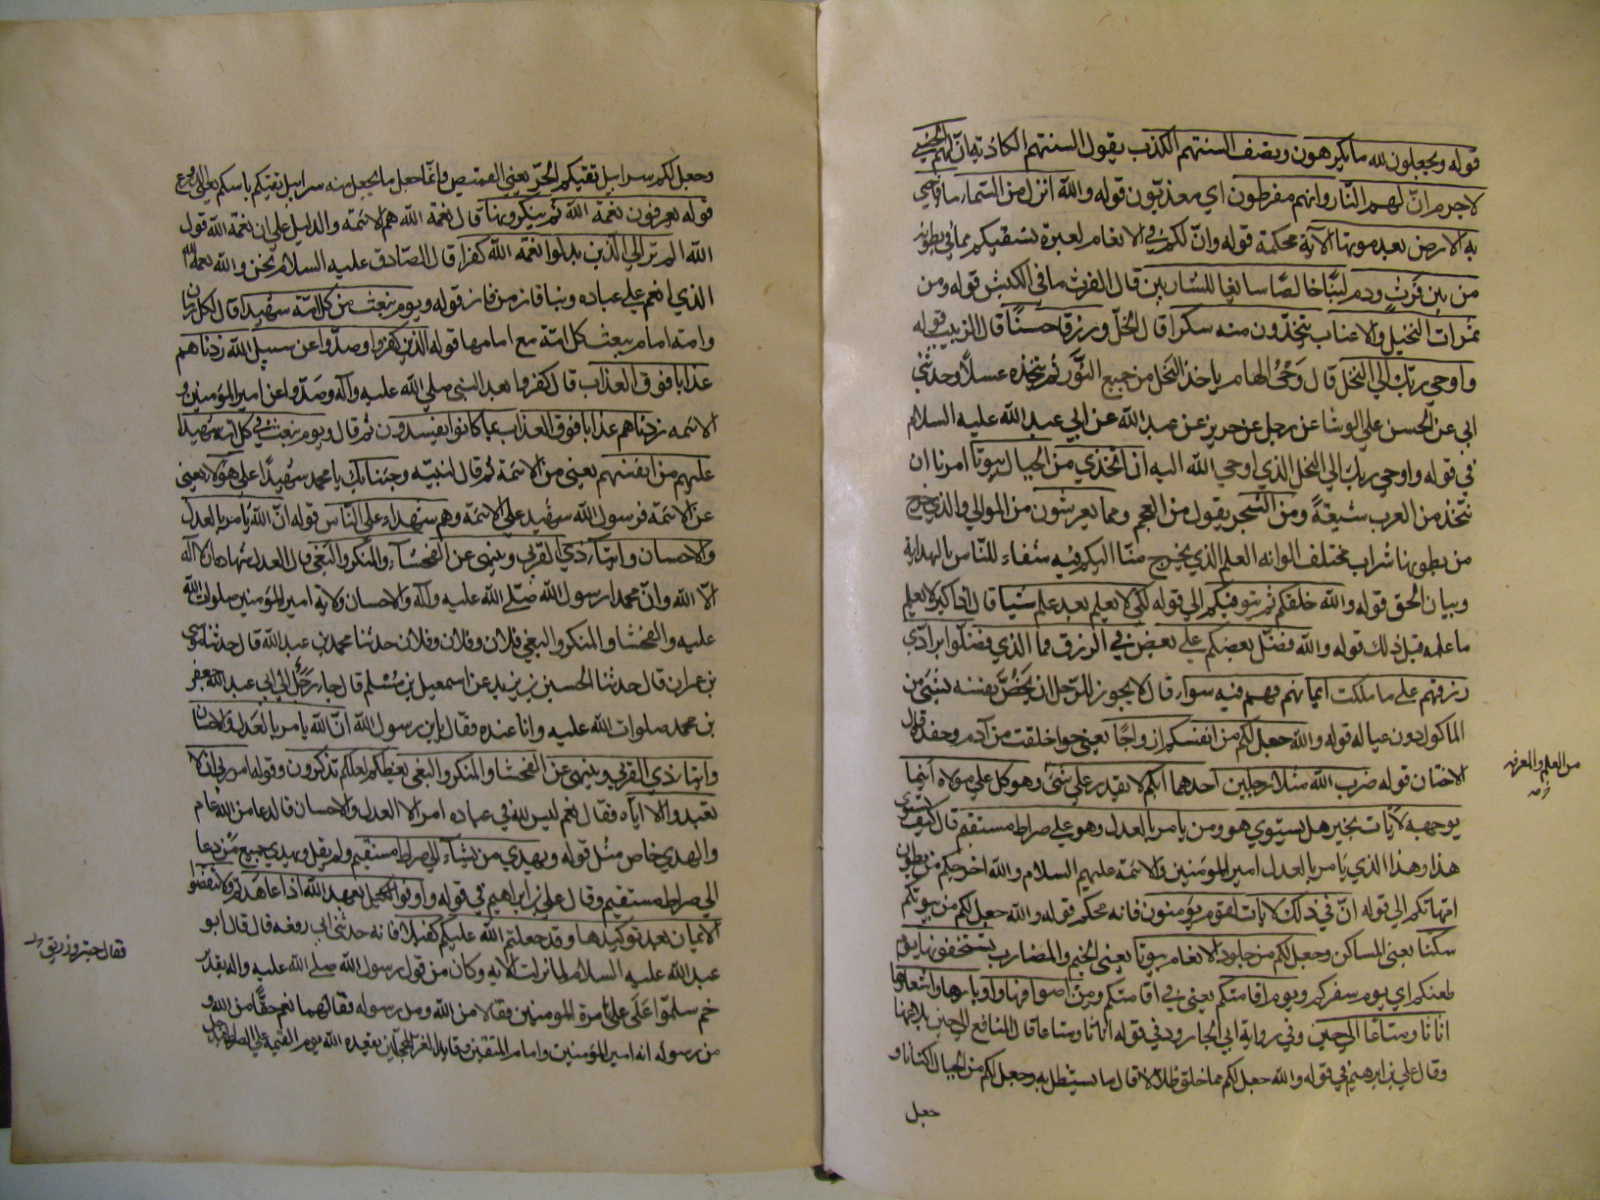 قوله ويجعلون لله ما يكرهون وتصف السنتهم الكذب يقول السنتهم الكاذبة ان لهم الحسنى
لا جرم ان لهم النار وانهم مفرطون اي معذبون قوله والله انزل من السماء ماء فاحيى
به الارض بعد موتها الآية محكمة قوله وان لكم في الانعام لعبرة نسقيكم مما في بطونه
من بين فرث ودم لبنا خالصا سائغا للشاربين قال الفرث ما في الكرش قوله ومن
ثمرات النخيل والاعناب تتخذون منه سكرا قال الخل ورزقا حسنا قال الزبيب قوله
واوحى ربك الى النحل قال وحي الهام ياخذ النحل من جميع النور ثم تتخذه عسلا وحدثني
ابي عن الحسن علي الوشا عن رجل عن حريز عن عبد الله عن ابي عبد الله عليه السلام
في قوله واوحى ربك الى النحل الذي اوحي الله اليه ان اتخذي من الجبال بيوتا امرنا ان
نتخذ من العرب شيعة ومن الشجر يقول من العجم ومما يعرشون من الموالي والذي خرج
من بطونها شراب مختلف الوانه العلم الذي يخرج منا اليكم فيه شفاء للناس بالهداية
وبيان الحق قوله والله خلقكم ثم يتوفيكم الى قوله لكي لا يعلم بعد علم شيئا قال اذا كبر لا يعلم
ما علمه قبل ذلك قوله والله فضل بعضكم على بعض في الرزق فما الذي فضلوا برادي
رزقهم على ما ملكت ايمانهم فهم فيه سواء قال لا يجوز للرجل ان يخص نفسه بشيء من
الماكول دون عياله قوله والله جعل لكم من انفسكم ازواجا يعني حوا خلقت من آدم وحفدة قال
الاختان قوله ضرب الله مثلا رجلين احدهما ابكم لا يقدر على شيء وهو كل على مولاه اينما
يوجهه لا يات بخير هل يستوي هو ومن يامر بالعدل وهو على صراط مستقيم قال كيف يستوي
هذا وهذا الذي يامر بالعدل امير المؤمنين والائمة عليهم السلام والله اخرجكم من بطون
امهاتكم الى قوله ان في ذلك لايات لقوم يؤمنون فانه محكم قوله والله جعل لكم من بيوتكم
سكنا يعني المساكن وجعل لكم من جلود الانعام بيوتا يعني الخيم والمضارب تستخفونها يوم
ظعنكم اي يوم سفركم ويوم اقامتكم يعني في اقامتكم ومن اصوافها واوبارها واشعارها
اثاثا ومتاعا الى حين وفي رواية ابي الجارود في قوله اثاثا ومتاعا قال المنافع الى حين بلاغها
وقال علي بن ابرهيم في قوله والله جعل لكم مما خلق ظلالا قال ما يستظل به وجعل لكم من الجبال اكنانا و
جعل
من العلم والمعرفة
وجعل لكم سرابيل تقيكم الحر يعني القميص وانما جعل ما يجعل منه سرابيل تقيكم باسكم يعني الدروع
قوله يعرفون نعمة الله ثم ينكرونها قال نعمة الله هم الائمة والدليل على ان نعمة الله قول
الله الم تر الى الذين بدلوا نعمة الله كفرا قال الصادق عليه السلام نحن والله نعمة الله
الذي انعم على عباده وبنا فاز من فاز قوله ويوم نبعث من كل امة شهيدا قال لكل زمان
وامة امام يبعث كل امة مع امامها قوله الذين كفروا وصدوا عن سبيل الله زدناهم
عذابا فوق العذاب قال كفروا بعد النبي صلى الله عليه وآله وصدوا عن امير المؤمنين و
الائمه زدناهم عذابا فوق العذاب بما كانوا يفسدون ثم قال ويوم نبعث في كل امة شهيدا
عليهم من انفسهم يعني من الائمة ثم قال لنبيه وجئنا بك يا محمد شهيدا على هؤلاء يعني
عن الائمة فرسول الله شهيد على الائمة وهم شهداء على الناس قوله ان الله يامر بالعدل
والاحسان وايتاء ذي القربى وينهى عن الفحشاء والمنكر والبغي قال العدل شهادة ان لا اله
الا الله وان محمدا رسول الله صلى الله عليه وآله والاحسان ولاية امير المؤمنين صلوات الله
عليه والفحشا والمنكر والبغي فلان وفلان وفلان حدثنا محمد بن عبد الله قال حدثنا موسى
بن عمران قال حدثنا الحسين بن يزيد عن اسمعيل بن مسلم قال جاء رجل الى ابي عبد الله جعفر
بن محمد صلوات الله عليه وانا عنده فقال يا بن رسول الله ان الله يامر بالعدل والاحسان
وايتاء ذي القربى وينهى عن الفحشا والمنكر والبغي يعظكم لعلكم تذكرون وقوله امر ربي الا
تعبدوا الا اياه فقال نعم ليس لله في عباده امر الا العدل والاحسان فالدعا من الله عام
والهدي خاص مثل قوله ويهدي من يشاء الى صراط مستقيم ولم يقل ويهدي جميع من دعا
الى صراط مستقيم وقال علي بن ابراهيم في قوله واوفوا بعهد الله اذا عاهدتم ولا تنقضوا
الايمان بعد توكيدها وقد جعلتم الله عليكم كفيلا فانه حدثني ابي رفعه قال قال ابو
عبد الله عليه السلام لما نزلت الآية وكان من قول رسول الله صلى الله عليه وآله بغدير
خم سلموا على علي بامرة المومنين فقالا من الله ومن رسوله فقال لهما نعم حقا من الله و
من رسوله انه امير المؤمنين وامام المتقين وقايد الغر المحجلين يقعده الله يوم القيمة على الصراط
فقال حبتر وزريق